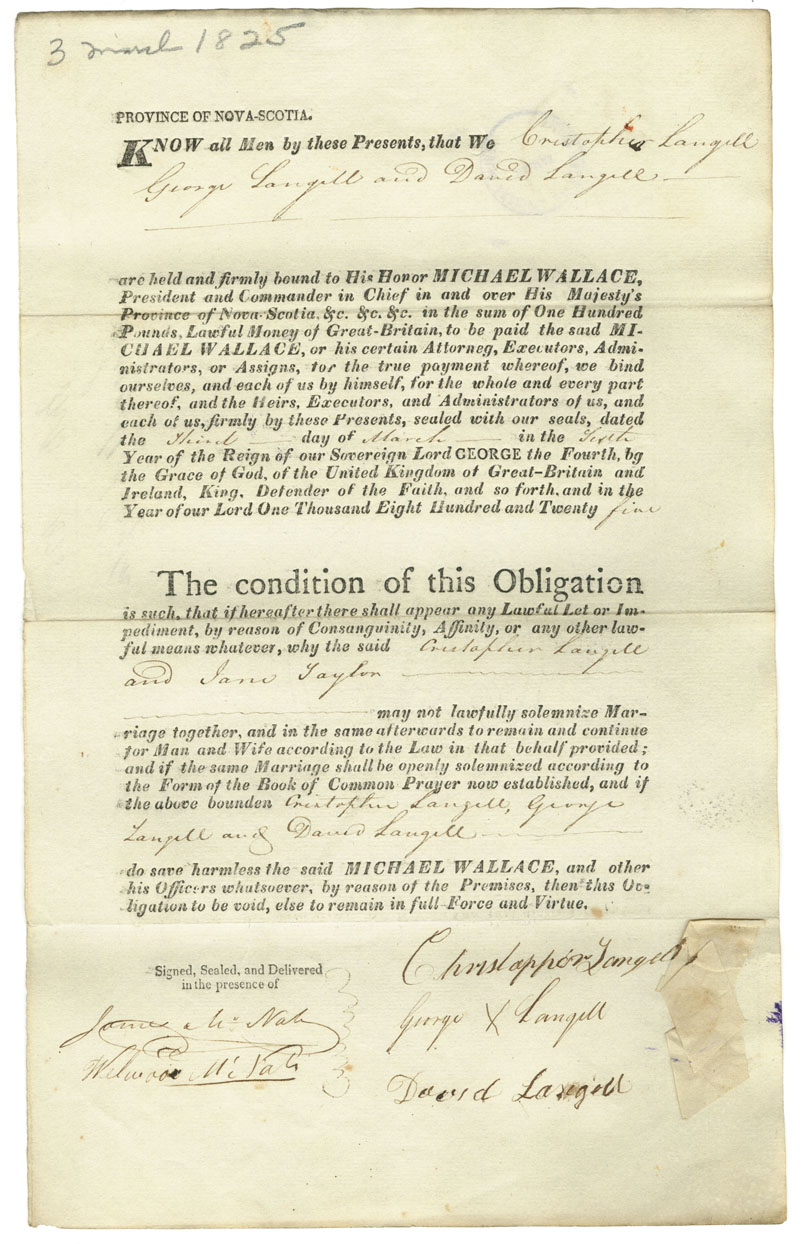 3 march 1825
PROVINCE OF NOVA-SCOTIA.
KNOW all Men by these Presents, that We Cristopher Langell
George Langell and David Langell
are held and firmly bound to His Honor MICHAEL WALLACE,
President and Commander in Chief in and over His Majesty's
Province of Nova-Scotia, &c. &c. &c. in the sum of One Hundred
Pounds, Lawful Money of Great-Britain, to be paid the said MI-
CHAEL WALLACE, or his certain Attorneg, Executors, Admi-
nistrators, or Assigns, for the true payment whereof, we bind
ourselves, and each of us by himself, for the whole and every part
thereof, and the Heirs, Executors, and Administrators of us, and
each of us, firmly by these Presents, sealed with our seals, dated
the Third day of March in the Sixth
Year of the Reign of our Sovereign Lord GEORGE the Fourth, bg
the Grace of God, of the United Kingdom of Great-Britain and
Ireland, King, Defender of the Faith, and so forth, and in the
Year of our Lord One Thousand Eight Hundred and Twenty five
The condition of this Obligation
is such, that if hereafter there shall appear any Lawful Let or Im-
pediment, by reason of Consanguinity, Affinity, or any other law-
ful means whatever, why the said Cristopher Langell
and Jane Taylor
may not lawfully solemnize Mar-
riage together, and in the same afterwards to remain and continue
for Man and Wife according to the Law in that behalf provided;
and if the same Marriage shall be openly solemnized according to
the Form of the Book of Common Prayer now established, and if
the above bounden Cristopher Langell, George
Langell and David Langell
do save harmless the said MICHAEL WALLACE, and other
his Officers whatsoever, by reason of the Premises, then this Ob-
ligation to be void, else to remain in full Force and Virtue.
Signed, Sealed, and Delivered
in the presence of
Christappor Langell
George X Langell
David Langell
James McNab
Welwood McNab